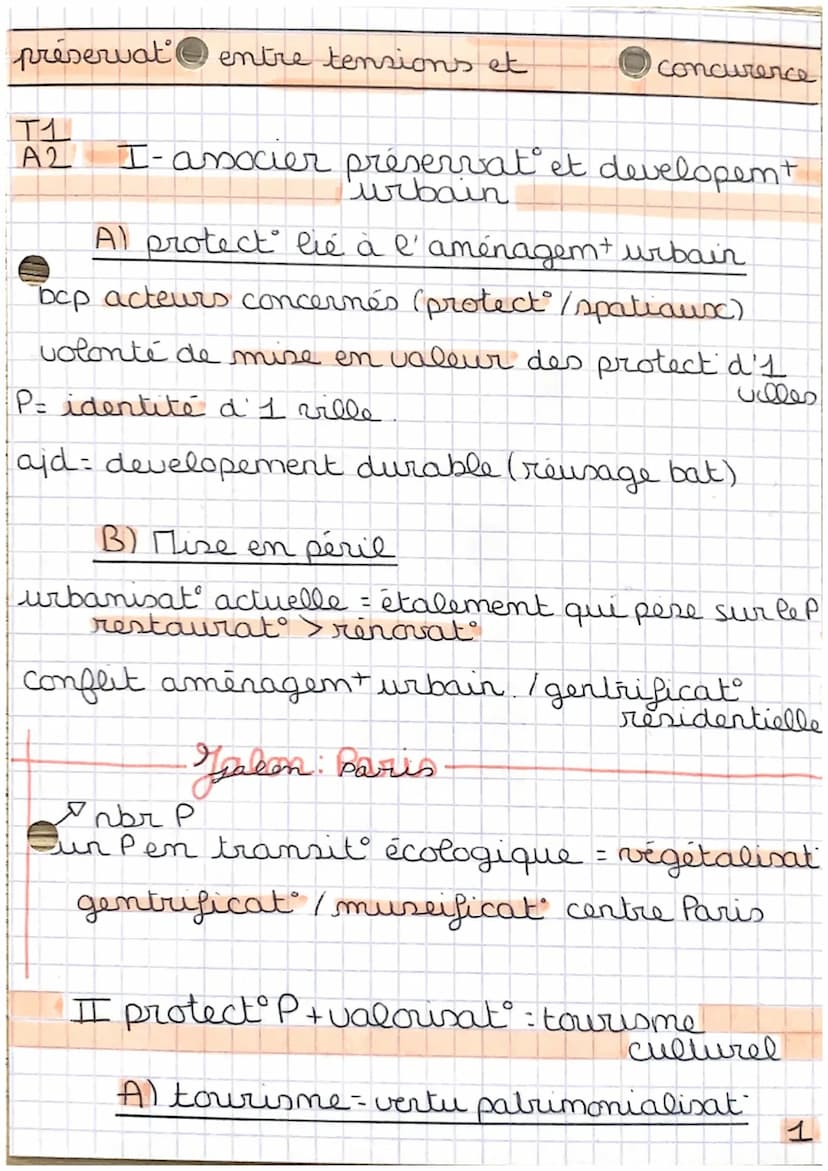 préservat° entre tensions et concurence
T1
A2 I- associer préservat° et developem+
urbain
A) protect° lié à l'aménagem+ urbain
bcp acteurs concernés (protect°/spatiaux)
volonté de mise en valeur des protect° d'1
villes
P= identité d'1 ville.
ajd = developement durable (réusage bat)
B) Mise en péril
urbanisat° actuelle = étalement qui pese sur le P
restaurat° > rénovat°
conflit aménagem+ urbain. / gentrificat°
résidentielle
Jalon: Paris
↗ nbr P
un P en transit° écologique = végétalisat
gentrificat° / museificat° centre Paris
II protect° P + valorisat° : tourisme
culturel
A) tourisme = vertu patrimonialisat°
1